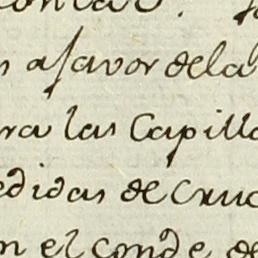 contad.
s afavor dela
ra las Capilla
edidas de Cruc
n el conde de